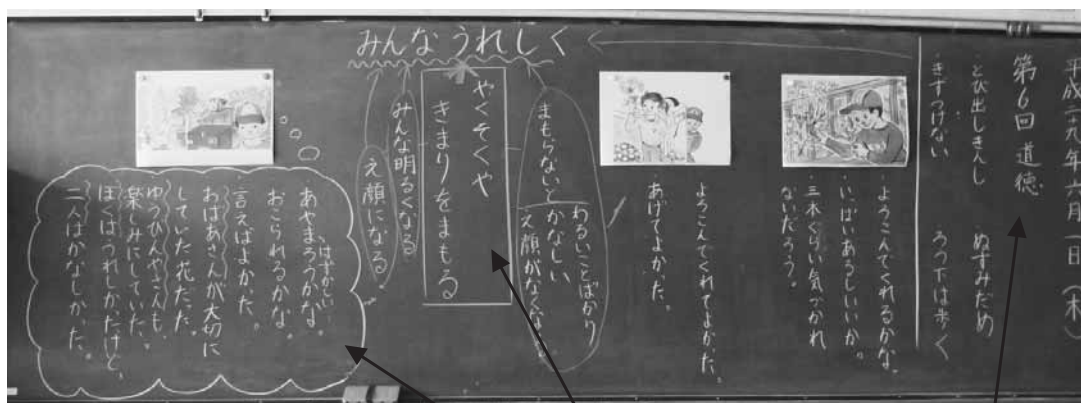 平成二十九年六月一日(木)
第6回 道徳
・とび出しきんし
・ぬすみだめ
・きずつけない
・ろう下は歩く
・よろこんでくれるかな。
・いっぱいあるしいいか。
・三本ぐらい気づかれ
ないだろう。
・よろこんでくれてよかった。
・あげてよかった。
みんなうれしく
まもらないと
わるいことばかり
かなしい
え顔がなくなる
やくそくや
きまりをまもる
みんな明るくなる
え顔になる。
はずかしい
・あやまろうかな。
・おこられるかな。
・言えばよかった。
・おばあさんが大切に
していた花だった。
・ゆうびんやさんも
楽しみにしていた。
・ぼくはうれしかったけど、
二人はかなしかった。